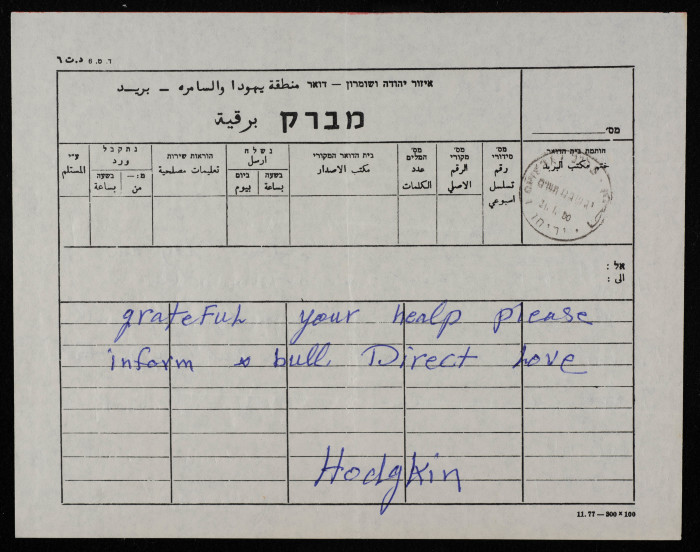 ד.מ. 6 د.ت ٦
איזור יהודה ושומרון – דואר منطقة يهودا والسامره – بريد
מברק برقية
מס׳
ע״י
المستلم
נתקבל
ورد
מ:—
من
בשעה
بساعة
הוראות שירות
تعليمات مصلحية
נשלח
ارسل
ביום
بيوم
בשעה
بساعة
בית הדואר המקורי
مكتب الاصدار
מס׳
המלים
عدد
الكلمات
מס׳
מקורי
الرقم
الاصلي
מס׳
סידורי
رقم
تسلسل
اسبوعي
חותמת בית הדואר
ختم مكتب البريد
אל :
الى :
grateful your healp please
inform bull Direct Love
Hodgkin
11.77 — 500 × 100